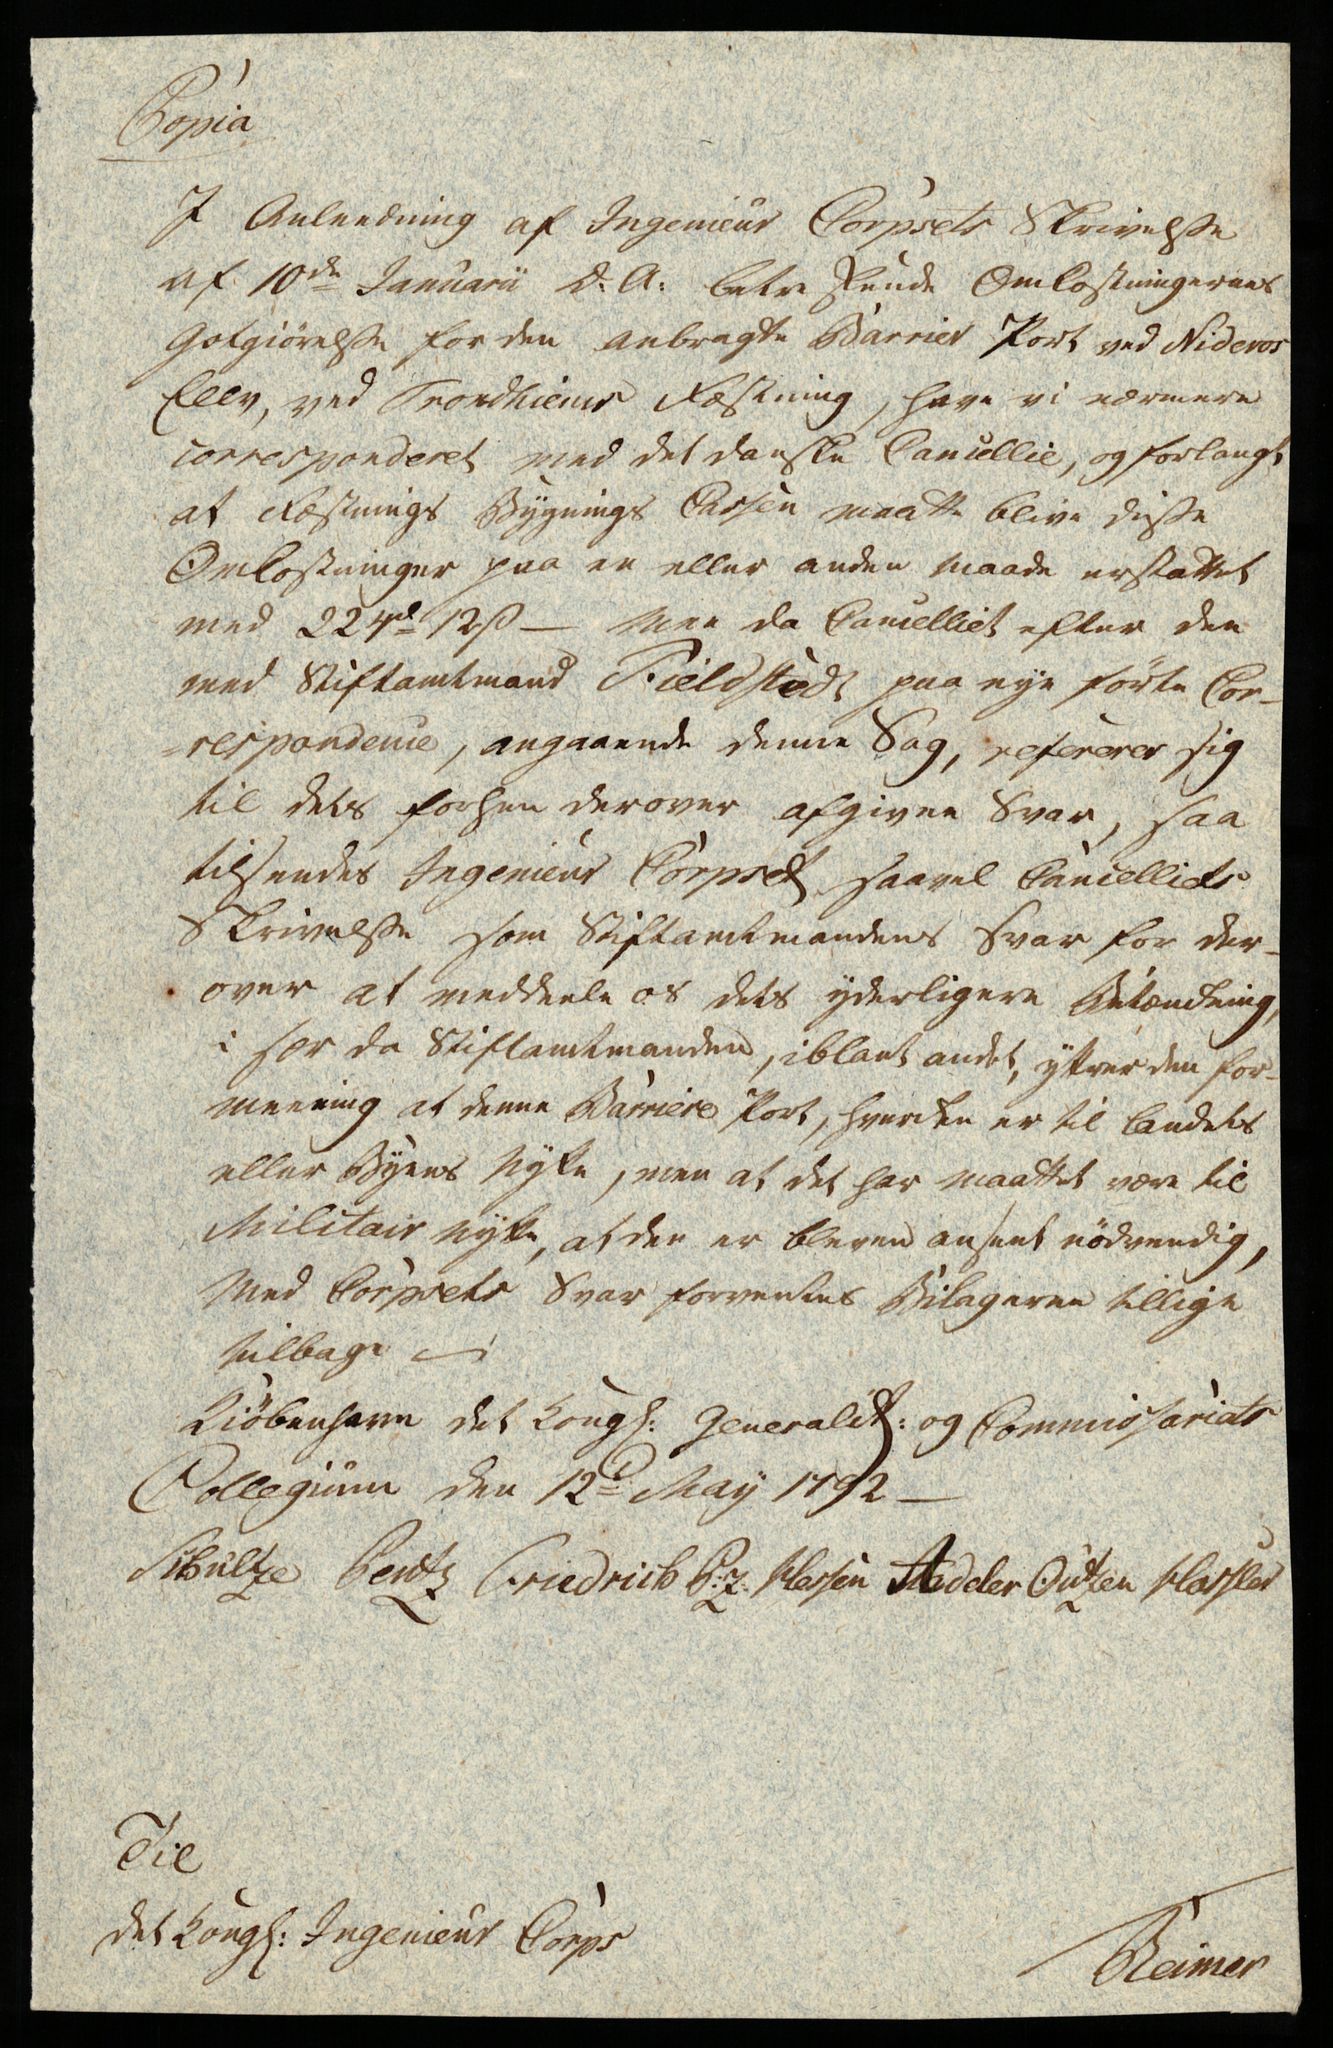 Copia
I Anleedning af Ingenieur Corpsets Skrivelße
af 10de Januarii d: A: betreffende Omkostningernes
Godtgiørelße for den anbragte Barrier Port ved Nideros
Elev, ved Trondhiems Fæstning, have vi nærmere
corresponderet med det danske Cancellie, og forlangt
at Fæstnings Bygnings Cassen maatte blive diße
Omkostninger paa en eller anden Maade erstattet
med 22 rd 12 ß — Men da Cancelliet efter den
med Stiftamtmand Fieldstedt paa nye förte Cor-
=respondence, angaaende denne Sag, refererer sig
til dets forhen derover afgivne Svar, saa
tilsendes Ingenieur Corpset saavel Cancelliets
Skrivelße som Stiftamtmandens Svar for der-
over at meddeele os dets yderligere Betænkning,
i sær da Stiftamtmanden, iblant andet, yttrer den for-
meening at denne Barriere Port, hverken er til Landets
eller Byens Nytte, men at det har maattet være til
Militair Nytte, at den er bleven anseet nödvendig,
Med Corpsets Svar forventes Bilagerne tillige
tilbage —
Kiöbenhavn det Kongl: Generalitets: og Commissariats
Collegium den 12d May 1792 —
Schultze Bentz Friedrich P: Z: Hessen Stedder Outzen Hassler
Til
det Kongl: Ingenieur Corps
Reimer